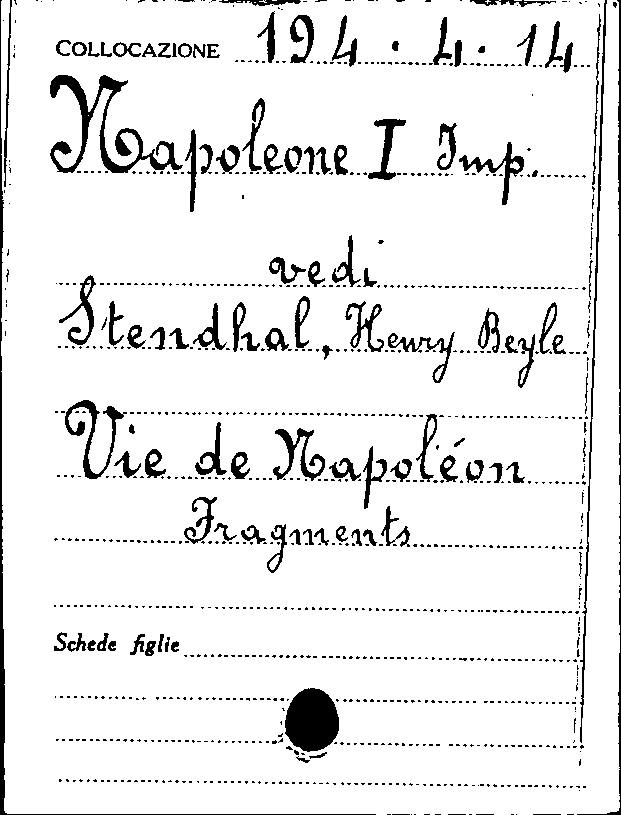 COLLOCAZIONE 194.4.14
Napoleone I Imp.
vedi
Stendhal, Henry Beyle
Vie de Napoléon
Fragments
Schede figlie